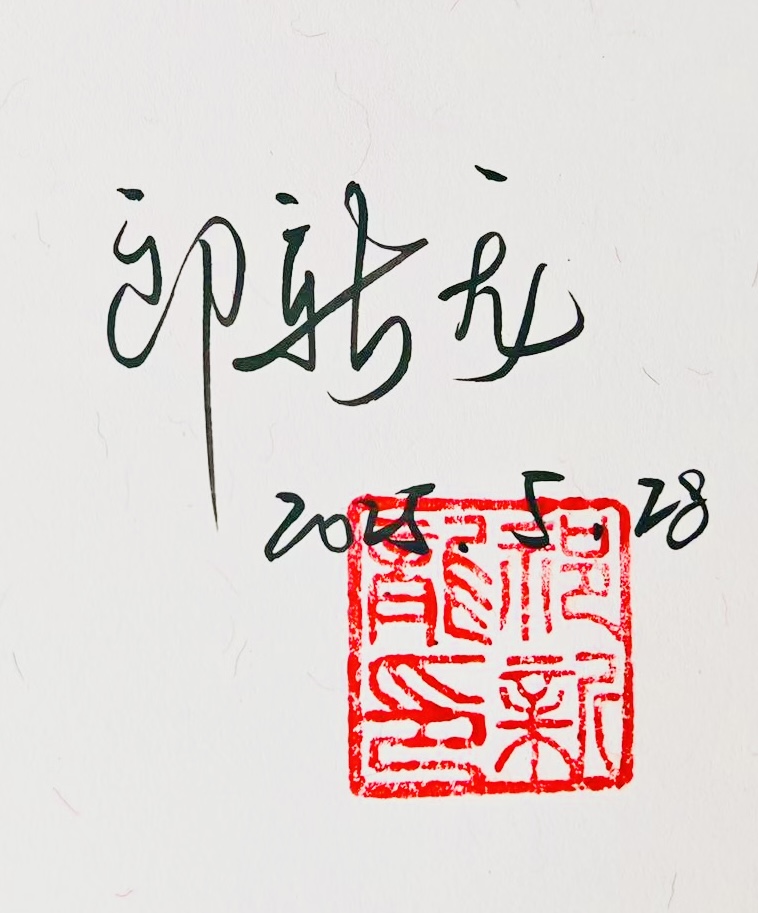 祁新龙
2025.5.28
祁新
龍印